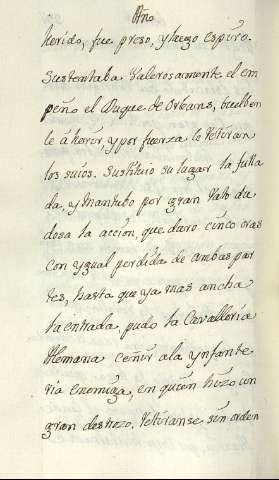 Año
herido, fue preso, y luego espiro.
Sustentaba Valerosamente el em
peño el Duque de Orleans, buelben
le á herir, y por fuerza lo retiran
los suios. Sustituio su lugar la fulla
da, y mantubo por gran rato du
dosa la acción, que duro cinco oras
con ygual perdida de ambas par
tes, hasta que ya mas ancha
la entrada, pudo la Cavalleria
Alemana ceñir ala ynfante
ria enemiga, en quien hizo un
gran destrozo. Retiranse sin orden